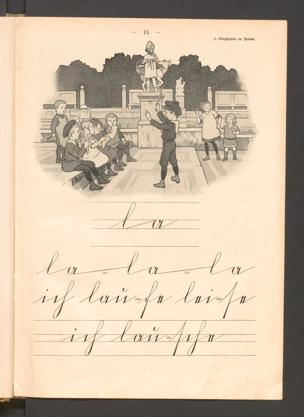 — 15 —
la
la - la - la
ich lau-fe lei-se
ich lau-sche